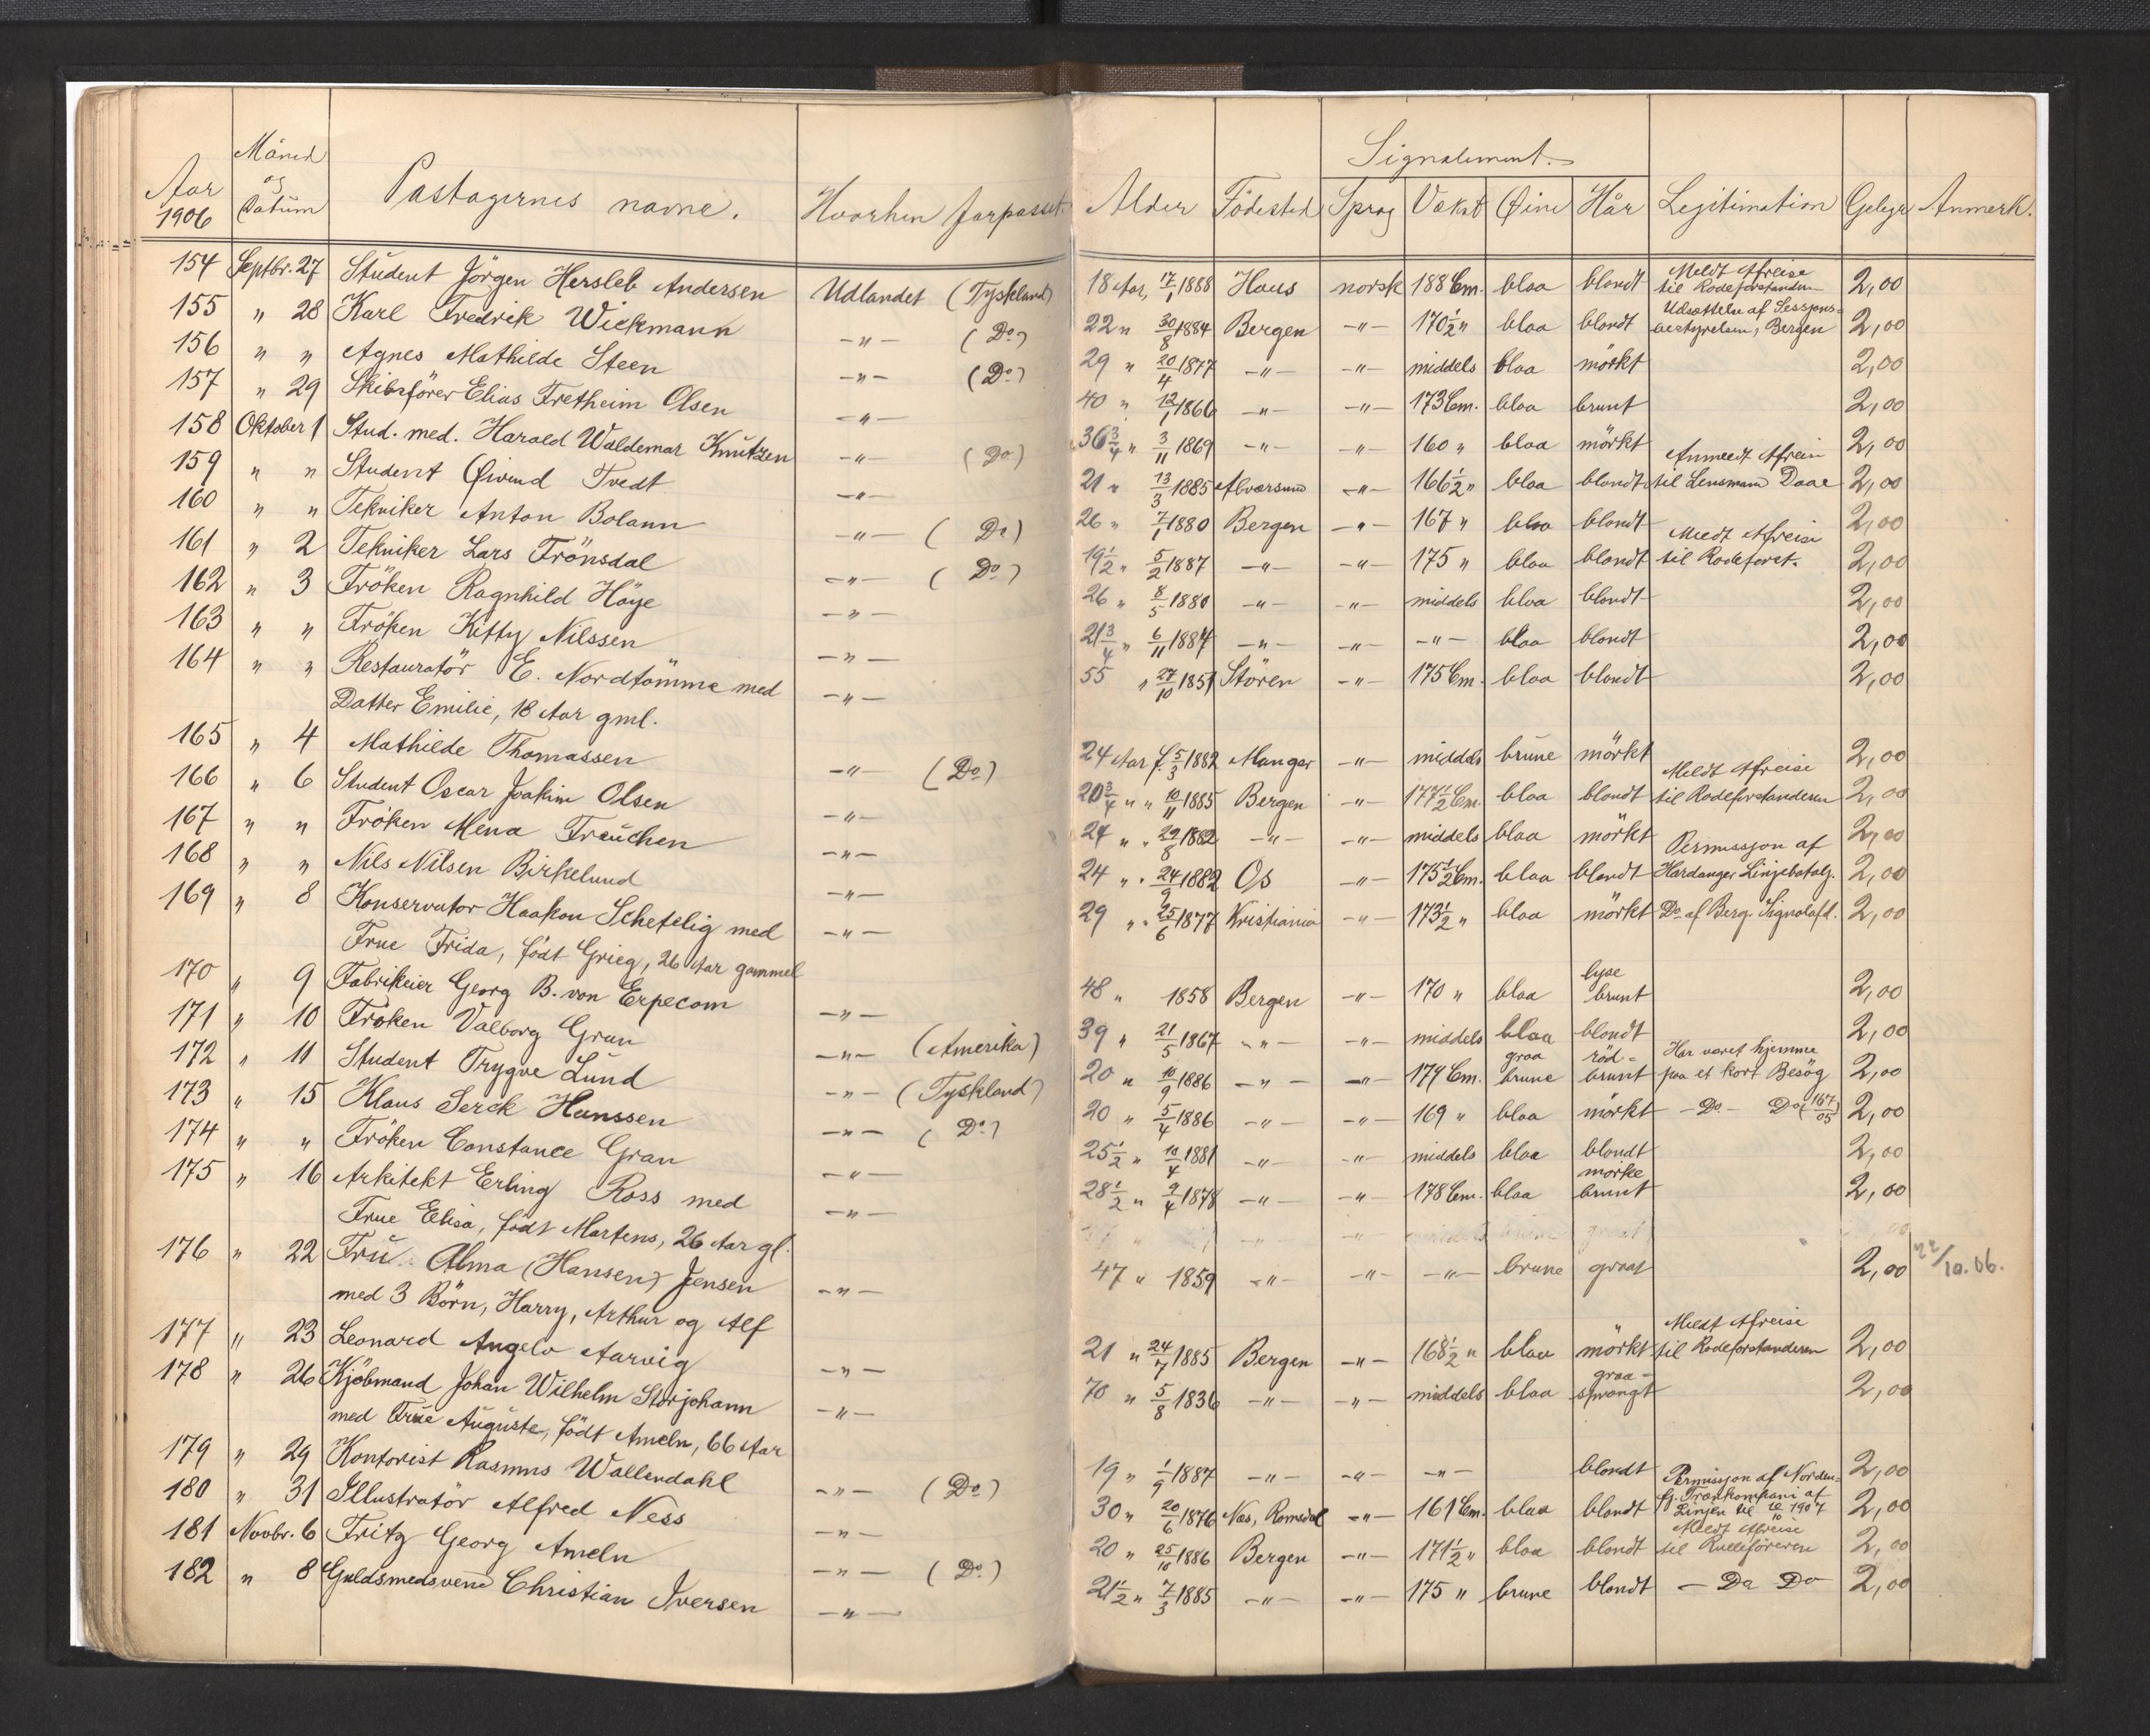 Aar 1906 | Måned og Datum | Passagernes navne. | Hvorhen farpasset. | Alder | Födested | Signalement. Sprog | Vækst | Øine | Hår | Legitimation | Gebyr | Anmerk.
154 Septbr. 27 Student Jörgen Hersleb Andersen Udlandet (Tyskland) 18 Aar, 17/1 1888 Haus norsk 188 Cm. blaa blondt Meldt Afreise til Rodeforstanderen 2,00
155 " 28 Karl Fredrik Wickmann -"- (Do) 22 " 30/8 1884 Bergen -"- 170½ " blaa blondt Udsættelse af Sessjons-bestyrelsen, Bergen 2,00
156 " " Agnes Mathilde Steen -"- (Do) 29 " 20/4 1877 -"- -"- middels blaa mörkt 2,00
157 " 29 Skibsförer Elias Fretheim Olsen -"- 40 " 12/1 1866 -"- -"- 173 Cm. blaa brunt 2,00
158 Oktober 1 Stud. med. Harald Waldemar Knutzen -"- (Do) 36¾ " 3/11 1869 -"- -"- 160 " blaa mörkt 2,00
159 " " Student Øivind Tvedt -"- 21 " 13/3 1885 Alversund -"- 166½ " blaa blondt Anmeldt Afreise til Lensmand Daae 2,00
160 " " Tekniker Anton Bolann -"- (Do) 26 " 7/1 1880 Bergen -"- 167 " blaa blondt 2,00
161 " 2 Tekniker Lars Frönsdal -"- (Do) 19½ " 5/2 1887 -"- -"- 175 " blaa blondt Meldt Afreise til Rodeforst. 2,00
162 " 3 Fröken Ragnhild Höye -"- 26 " 8/5 1880 -"- -"- middels blaa blondt 2,00
163 " " Fröken Kitty Nilssen -"- 21¾ " 6/11 1884 -"- -"- -"- blaa blondt 2,00
164 " " Restauratör E. Nordtömme med -"- 55 " 27/10 1851 Stören -"- 175 Cm. blaa blondt 2,00
Datter Emilie, 18 Aar gml.
165 " 4 Mathilde Thomassen -"- (Do) 24 Aar f. 5/3 1882 Manger -"- middels brune mörkt 2,00
166 " 6 Student Oscar Joakim Olsen -"- 20¾ " " 10/11 1885 Bergen -"- 177½ Cm. blaa blondt Meldt Afreise til Rodeforstanderen 2,00
167 " " Fröken Mena Frauchen -"- 24 " " 29/8 1882 -"- -"- middels blaa mörkt 2,00
168 " " Nils Nilsen Birkelund -"- 24 " " 24/9 1882 Os -"- 175½ Cm. blaa blondt Permissjon af Hardanger Linjebatalj. 2,00
169 " 8 Konservator Haakon Schetelig med -"- 29 " " 25/6 1877 Kristiania -"- 173½ " blaa mörkt Do af Berg. Signalafd. 2,00
Frue Frida, födt Grieg, 26 Aar gammel
170 " 9 Fabrikeier Georg B. von Erpecom -"- 48 " 1858 Bergen -"- 170 " blaa lyse brunt 2,00
171 " 10 Fröken Valborg Gran -"- (Amerika) 39 " 21/5 1867 -"- -"- middels blaa blondt 2,00
172 " 11 Student Trygve Lund -"- (Tyskland) 20 " 10/9 1886 -"- -"- 179 Cm. graa brune röd-brunt Har været hjemme paa et kort Besög 2,00
173 " 15 Klaus Serck Hanssen -"- (Do) 20 " 5/4 1886 -"- -"- 169 " blaa mörkt -Do- Do (167/05) 2,00
174 " " Fröken Constance Gran -"- 25½ " 10/4 1881 -"- -"- middels blaa blondt 2,00
175 " 16 Arkitekt Erling Ross med -"- 28½ " 9/4 1878 -"- -"- 178 Cm. blaa mörke brunt 2,00
Frue Elisa, födt Martens, 26 Aar gl.
176 " 22 Fru Alma (Hansen) Jensen -"- 47 " 1859 -"- -"- -"- brune graat 2,00 22/10.06.
med 3 Börn, Harry, Arthur og Alf
177 " 23 Leonard Angelo Aarvig -"- 21 " 24/7 1885 Bergen -"- 168½ " blaa mörkt Meldt Afreise til Rodeforstanderen 2,00
178 " 26 Kjöbmand Johan Wilhelm Storjohann -"- 70 " 5/8 1836 -"- -"- middels blaa graa-sprængt 2,00
med Frue Auguste, födt Ameln, 66 Aar
179 " 29 Kontorist Rasmus Wallendahl -"- (Do) 19 " 1/9 1887 -"- -"- -"- blondt 2,00
180 " 31 Illustratör Alfred Ness -"- 30 " 20/6 1876 Næs, Romsdal -"- 161 Cm. blaa blondt Permissjon af Norden-fj. Trænkompani af Linjen til 1907 2,00
181 Novbr. 6 Fritz Georg Ameln -"- (Do) 20 " 25/10 1886 Bergen -"- 171½ " blaa blondt Meldt Afreise til Rulleföreren 2,00
182 " 8 Guldsmedsvend Christian Iversen -"- 21½ " 7/3 1885 -"- -"- 175 " brune blondt - Do Do 2,00